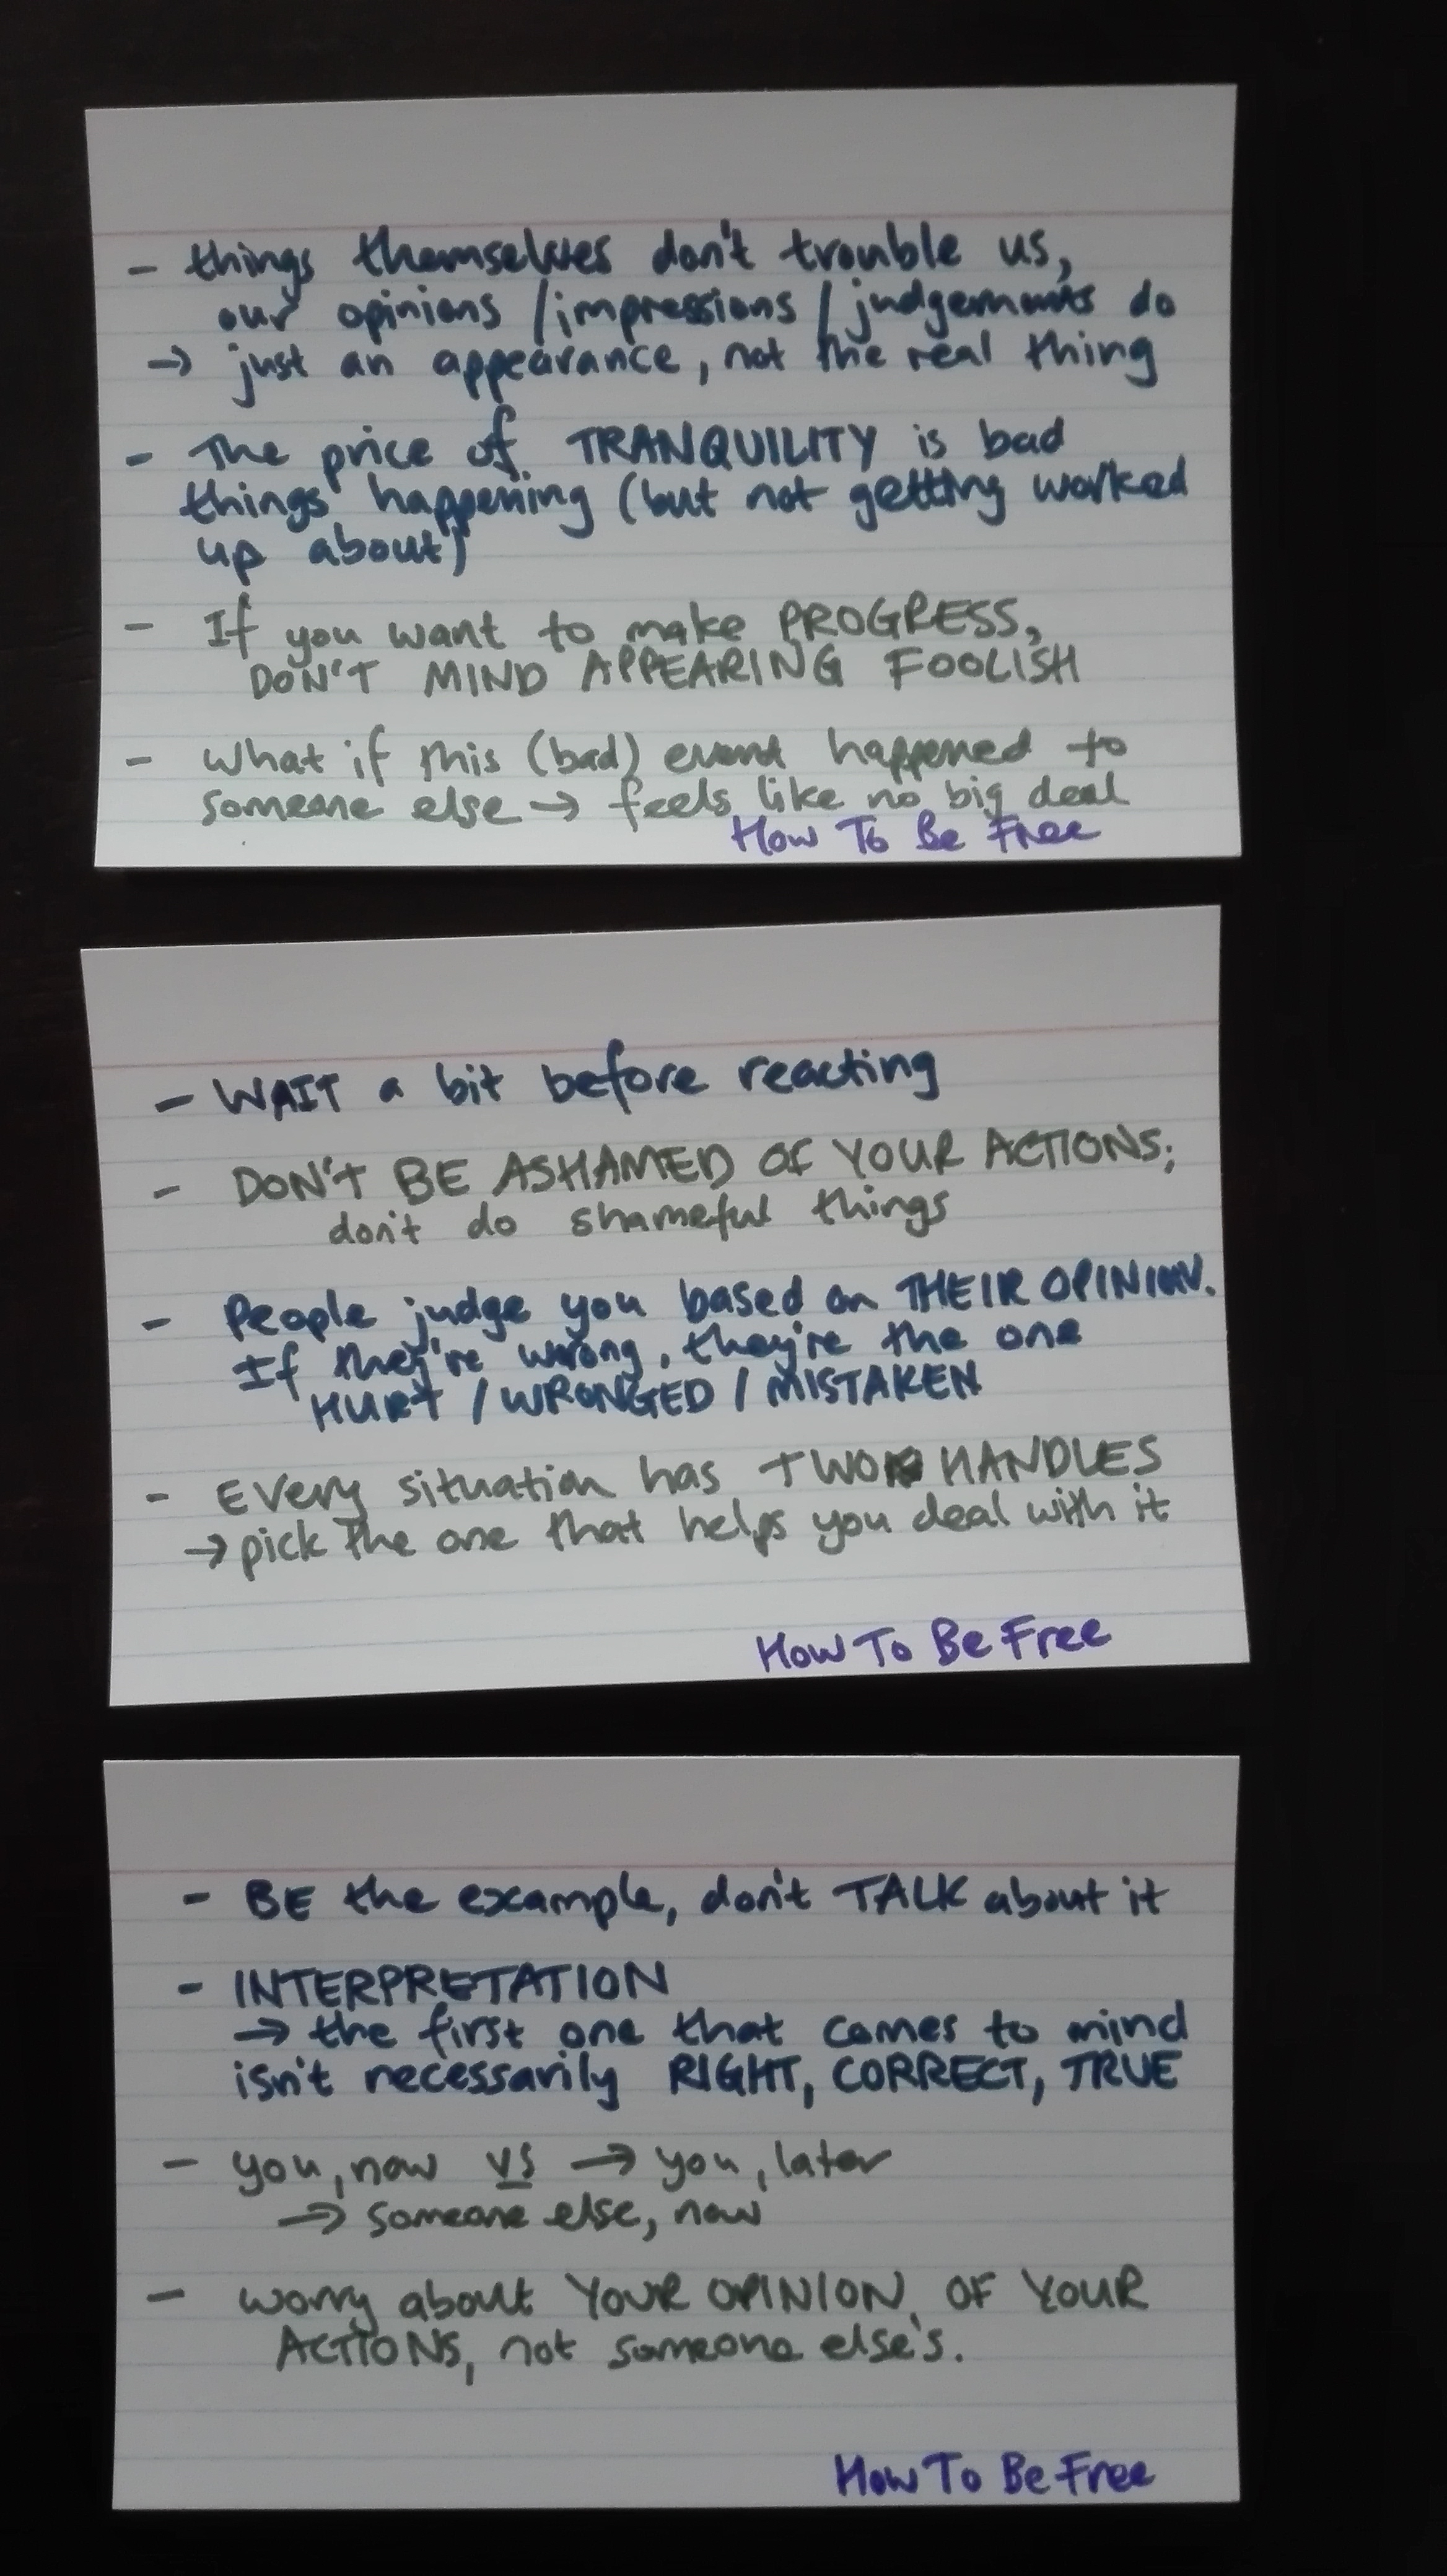 - things themselves don't trouble us,
our opinions / impressions / judgements do
→ just an appearance, not the real thing
- The price of TRANQUILITY is bad
things happening (but not getting worked
up about)
- If you want to make PROGRESS,
DON'T MIND APPEARING FOOLISH
- What if this (bad) event happened to
someone else → feels like no big deal
How To Be Free
- WAIT a bit before reacting
- DON'T BE ASHAMED OF YOUR ACTIONS;
don't do shameful things
- People judge you based on THEIR OPINION.
If they're wrong, they're the one
HURT / WRONGED / MISTAKEN
- Every situation has TWO HANDLES
→ pick the one that helps you deal with it
How To Be Free
- BE the example, don't TALK about it
- INTERPRETATION
→ the first one that comes to mind
isn't necessarily RIGHT, CORRECT, TRUE
- you, now vs → you, later
→ someone else, now
- worry about YOUR OPINION OF YOUR
ACTIONS, not someone else's.
How To Be Free